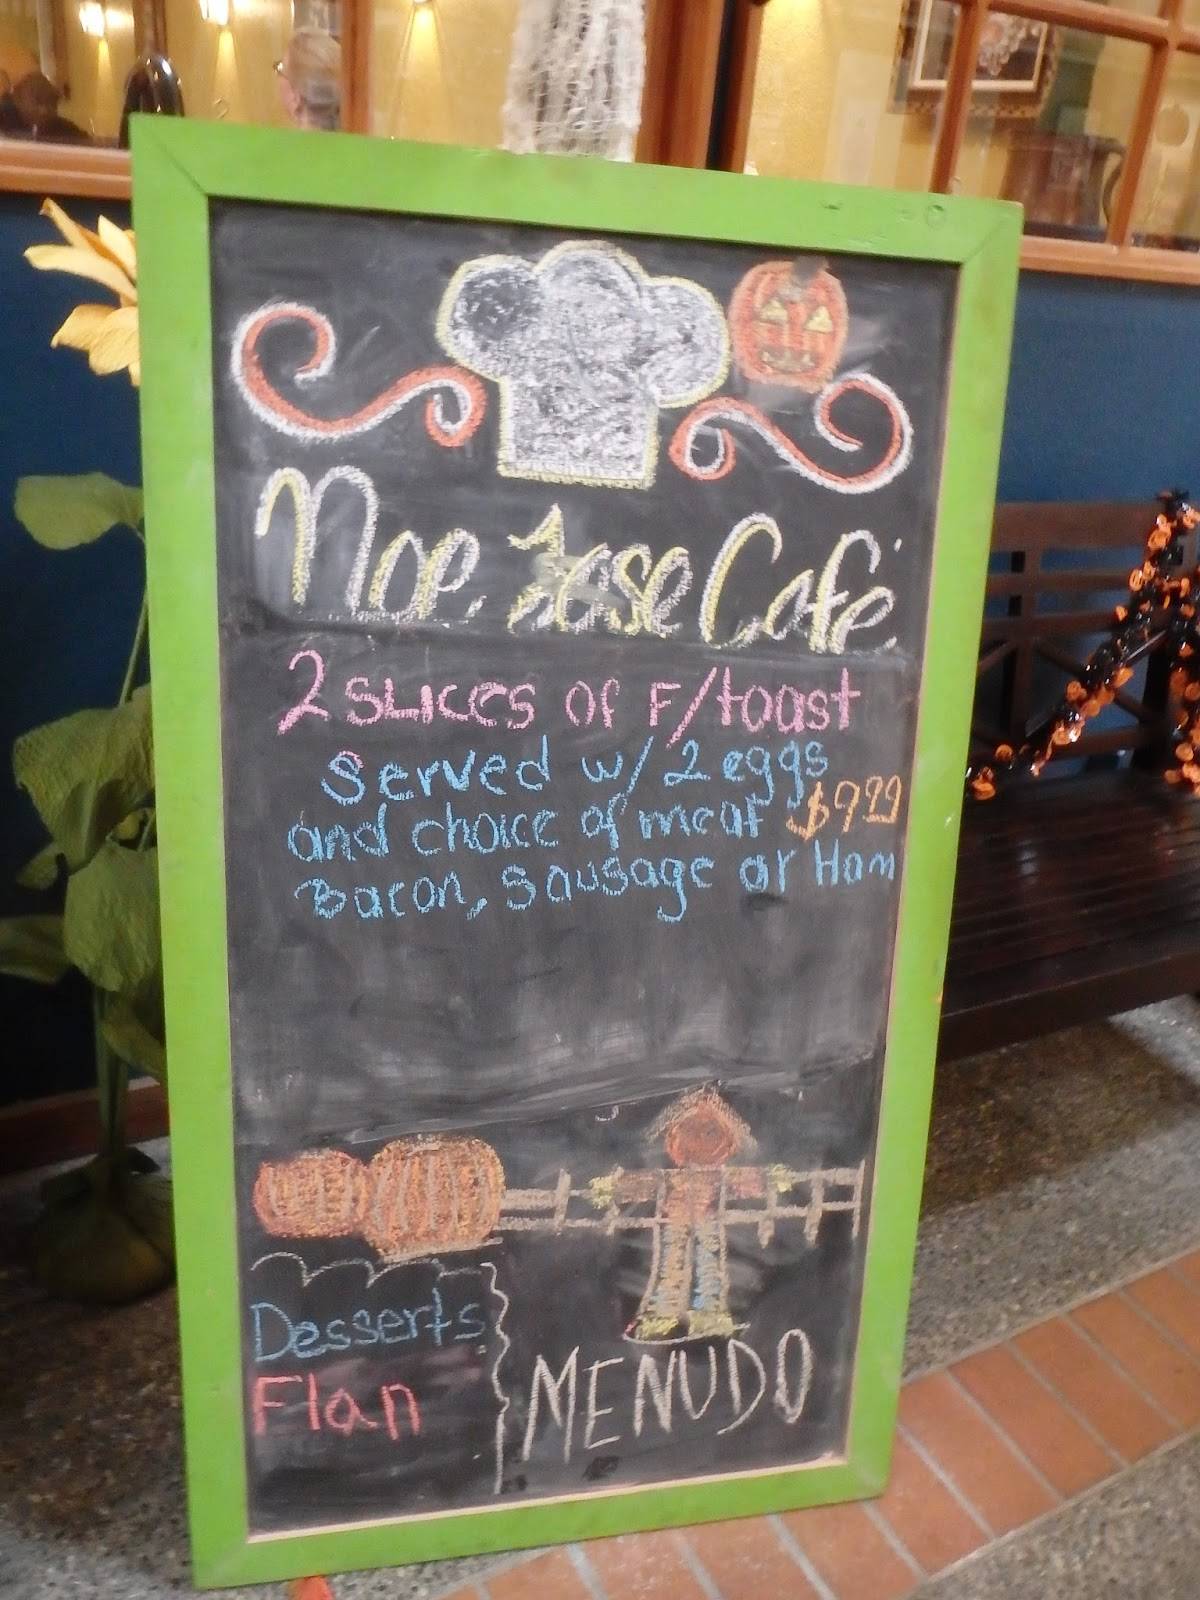 Noe, Jose Café
2 SLICES OF F/toast
Served w/ 2 eggs
and choice of meat $9.99
Bacon, Sausage or Ham
Desserts
Flan
MENUDO